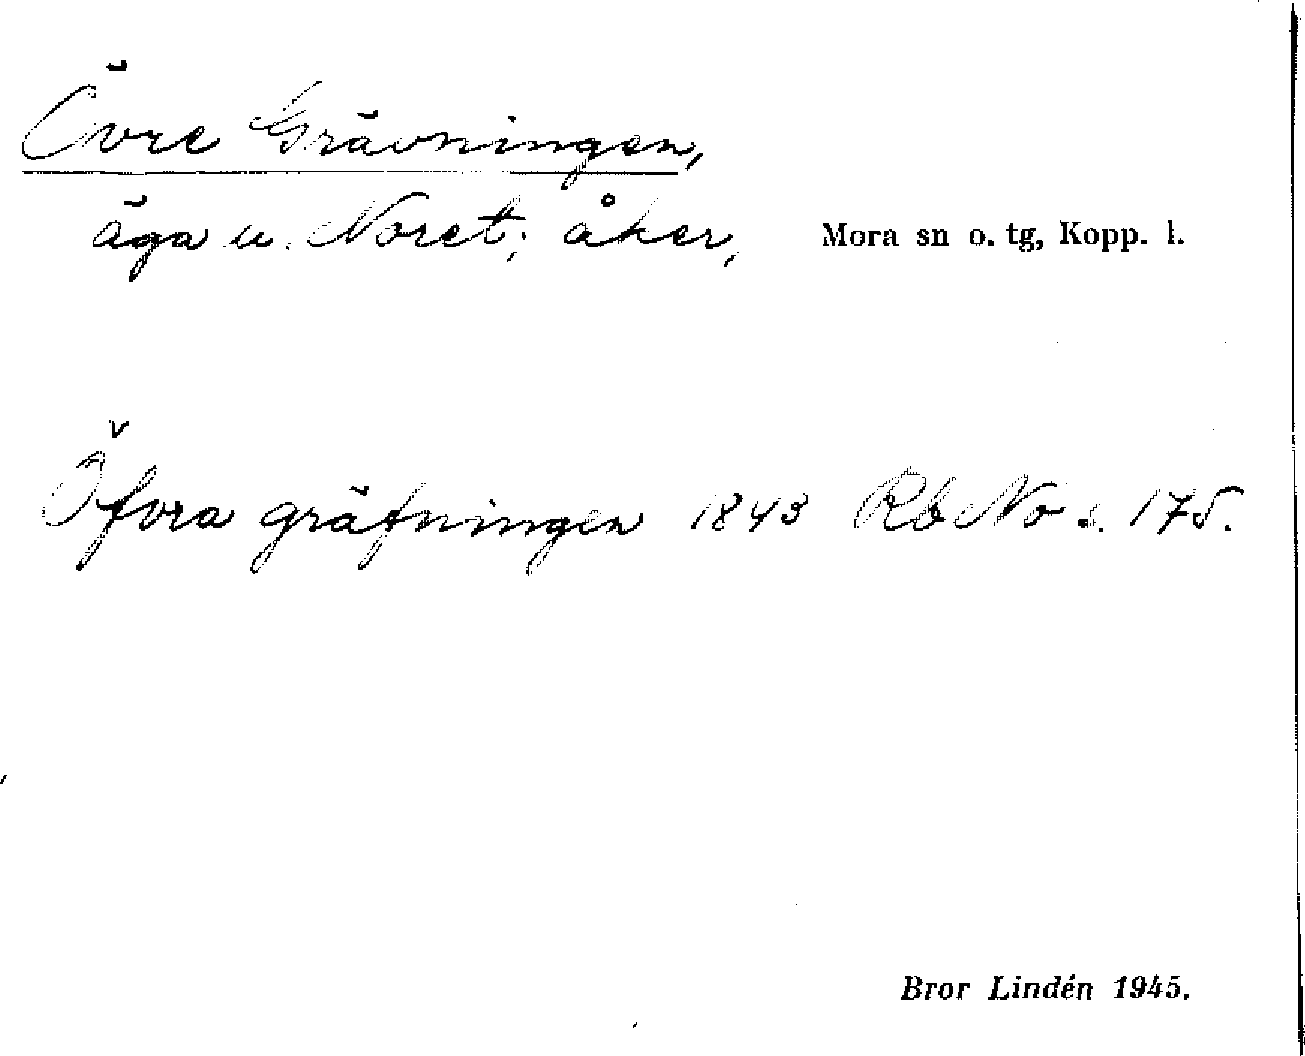 Övre Grävningen,
äga u. Noret; åker, Mora sn o. tg, Kopp. l.
Öfvra gräfningen 1843 Rb No s. 175.
Bror Lindén 1945.